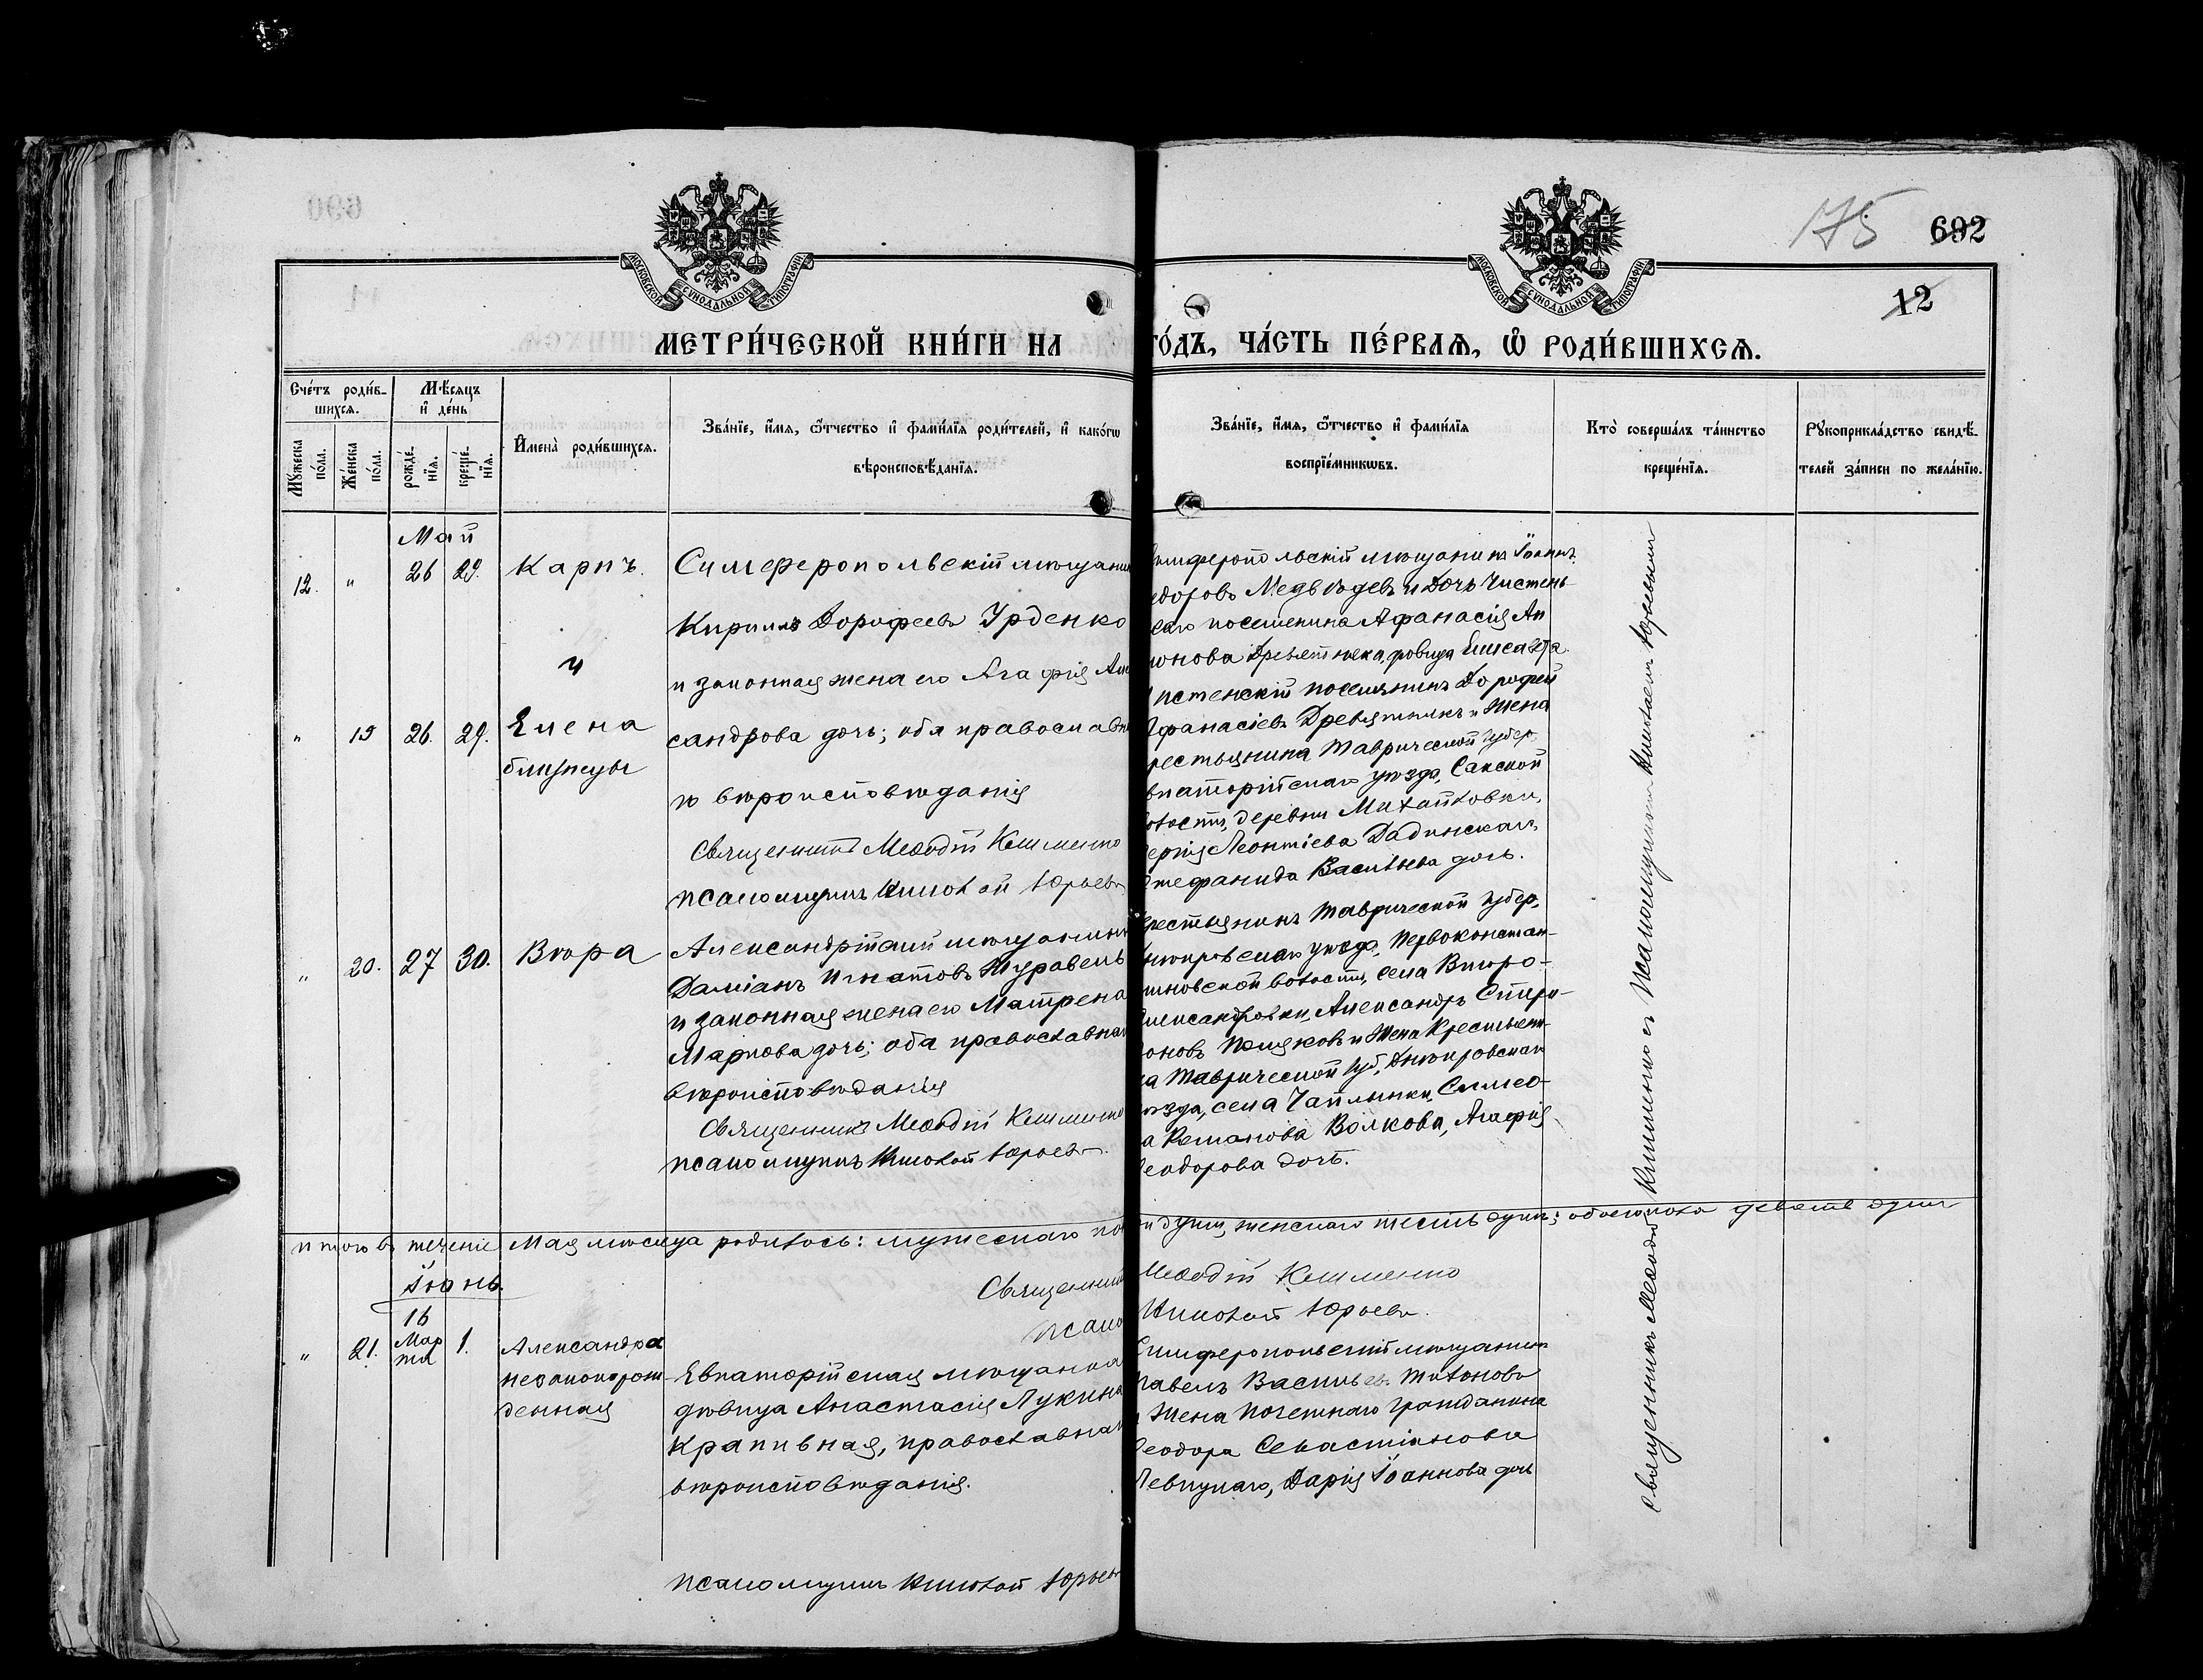 175
692
12
МОСКОВСКОЙ СѴНОДАЛЬНОЙ ТИПОГРАФІИ
МОСКОВСКОЙ СѴНОДАЛЬНОЙ ТИПОГРАФІИ
МЕТРИ́ЧЕСКОЙ КНИ́ГИ НА ГО́ДЪ, ЧА́СТЬ ПЕ́РВАѦ, Ѡ҆ РОДИ́ВШИХСѦ.
Сче́тъ роди́в-
шихсѧ.
Мꙋ́жеска по́ла.
Же́нска по́ла.
Мѣ́сѧцъ
и҆ де́нь
рожде́-
нїѧ.
креще́-
нїѧ.
И҆мена̀ роди́вшихсѧ.
Зва́нїе, и҆́мѧ, ѻ҆́тчество и҆ фами́лїѧ роди́телей, и҆ како́гѡ
вѣроисповѣ́данїѧ.
Зва́нїе, и҆́мѧ, ѻ҆́тчество и҆ фами́лїѧ
воспрїе́мникѡвъ.
Кто̀ соверша́лъ та́инство
креще́нїѧ.
Рꙋкоприкла́дство свидѣ́-
телей за́писи по жела́нїю.
Май
12. " 26 29. Карпъ.
и
" 19 26. 29. Елена
близнецы
Симферопольскій мѣщанин
Кириллъ Дорофеевъ Урденко
и законная жена его Агафія Але
сандрова дочь; оба православн
го вѣроисповѣданія
Священникъ Меѳодій Клименко
псаломщикъ Николай Юрьевъ
имферопольскій мѣщанинъ Іоаннъ
едоровъ Медвѣдевъ и Дочь Чистень-
скаго поселянина Афанасія Ан
тонова Древятника, дѣвица Елисавета.
истенскій поселянинъ Дорофей
Афанасіевъ Древятникъ и Жена
рестьянина Таврической губер.
впаторійскаго уѣзда, Сакской
олости, деревни Михайловки,
ергія Леонтіева Дадинскаго,
тефанида Васильева дочь.
" 20. 27 30. Вѣра
Александрійскій мѣщанинъ
Даміанъ Игнатовъ Журавель
и законная жена его Матрена
Маркова дочь; оба православнаго
вѣроисповѣданія
Священникъ Меѳодій Клименко
псаломщикъ Николай Юрьевъ.
рестьянинъ Таврической губер.
нѣпровскаго уѣзда, Первоконстан-
тиновской волости, села Второ-
александровки, Александръ Спири-
оновъ Поляковъ и Жена Крестьяни-
на Таврической губ., Днѣпровскаго
ѣзда, села Чаплынки, Симео-
а Романова Волкова, Агафія
еодорова дочь.
Итого въ теченіе Мая мѣсяца родилось: мужескаго по и души, женскаго шесть душъ; обоего пола девять душъ
Священник Меѳодій Клименко
псало Николай Юрьевъ.
Іюнь.
" 21. 16 Мар
та 1. Александра
незаконорож-
денная
Евпаторійская мѣщанка
дѣвица Анастасія Лукина
Крапивная, православнаго
вѣроисповѣданія.
псаломщикъ Николай Юрьевъ
Симферопольскій мѣщанинъ
Павелъ Васильевъ Тихоновъ
и Жена Почетнаго Гражданина
Ѳеодора Севастіанова
Левицкаго, Дарія Іоаннова дочь
Священникъ Меѳодій Клименко съ псаломщикомъ Николаемъ Юрьевымъ